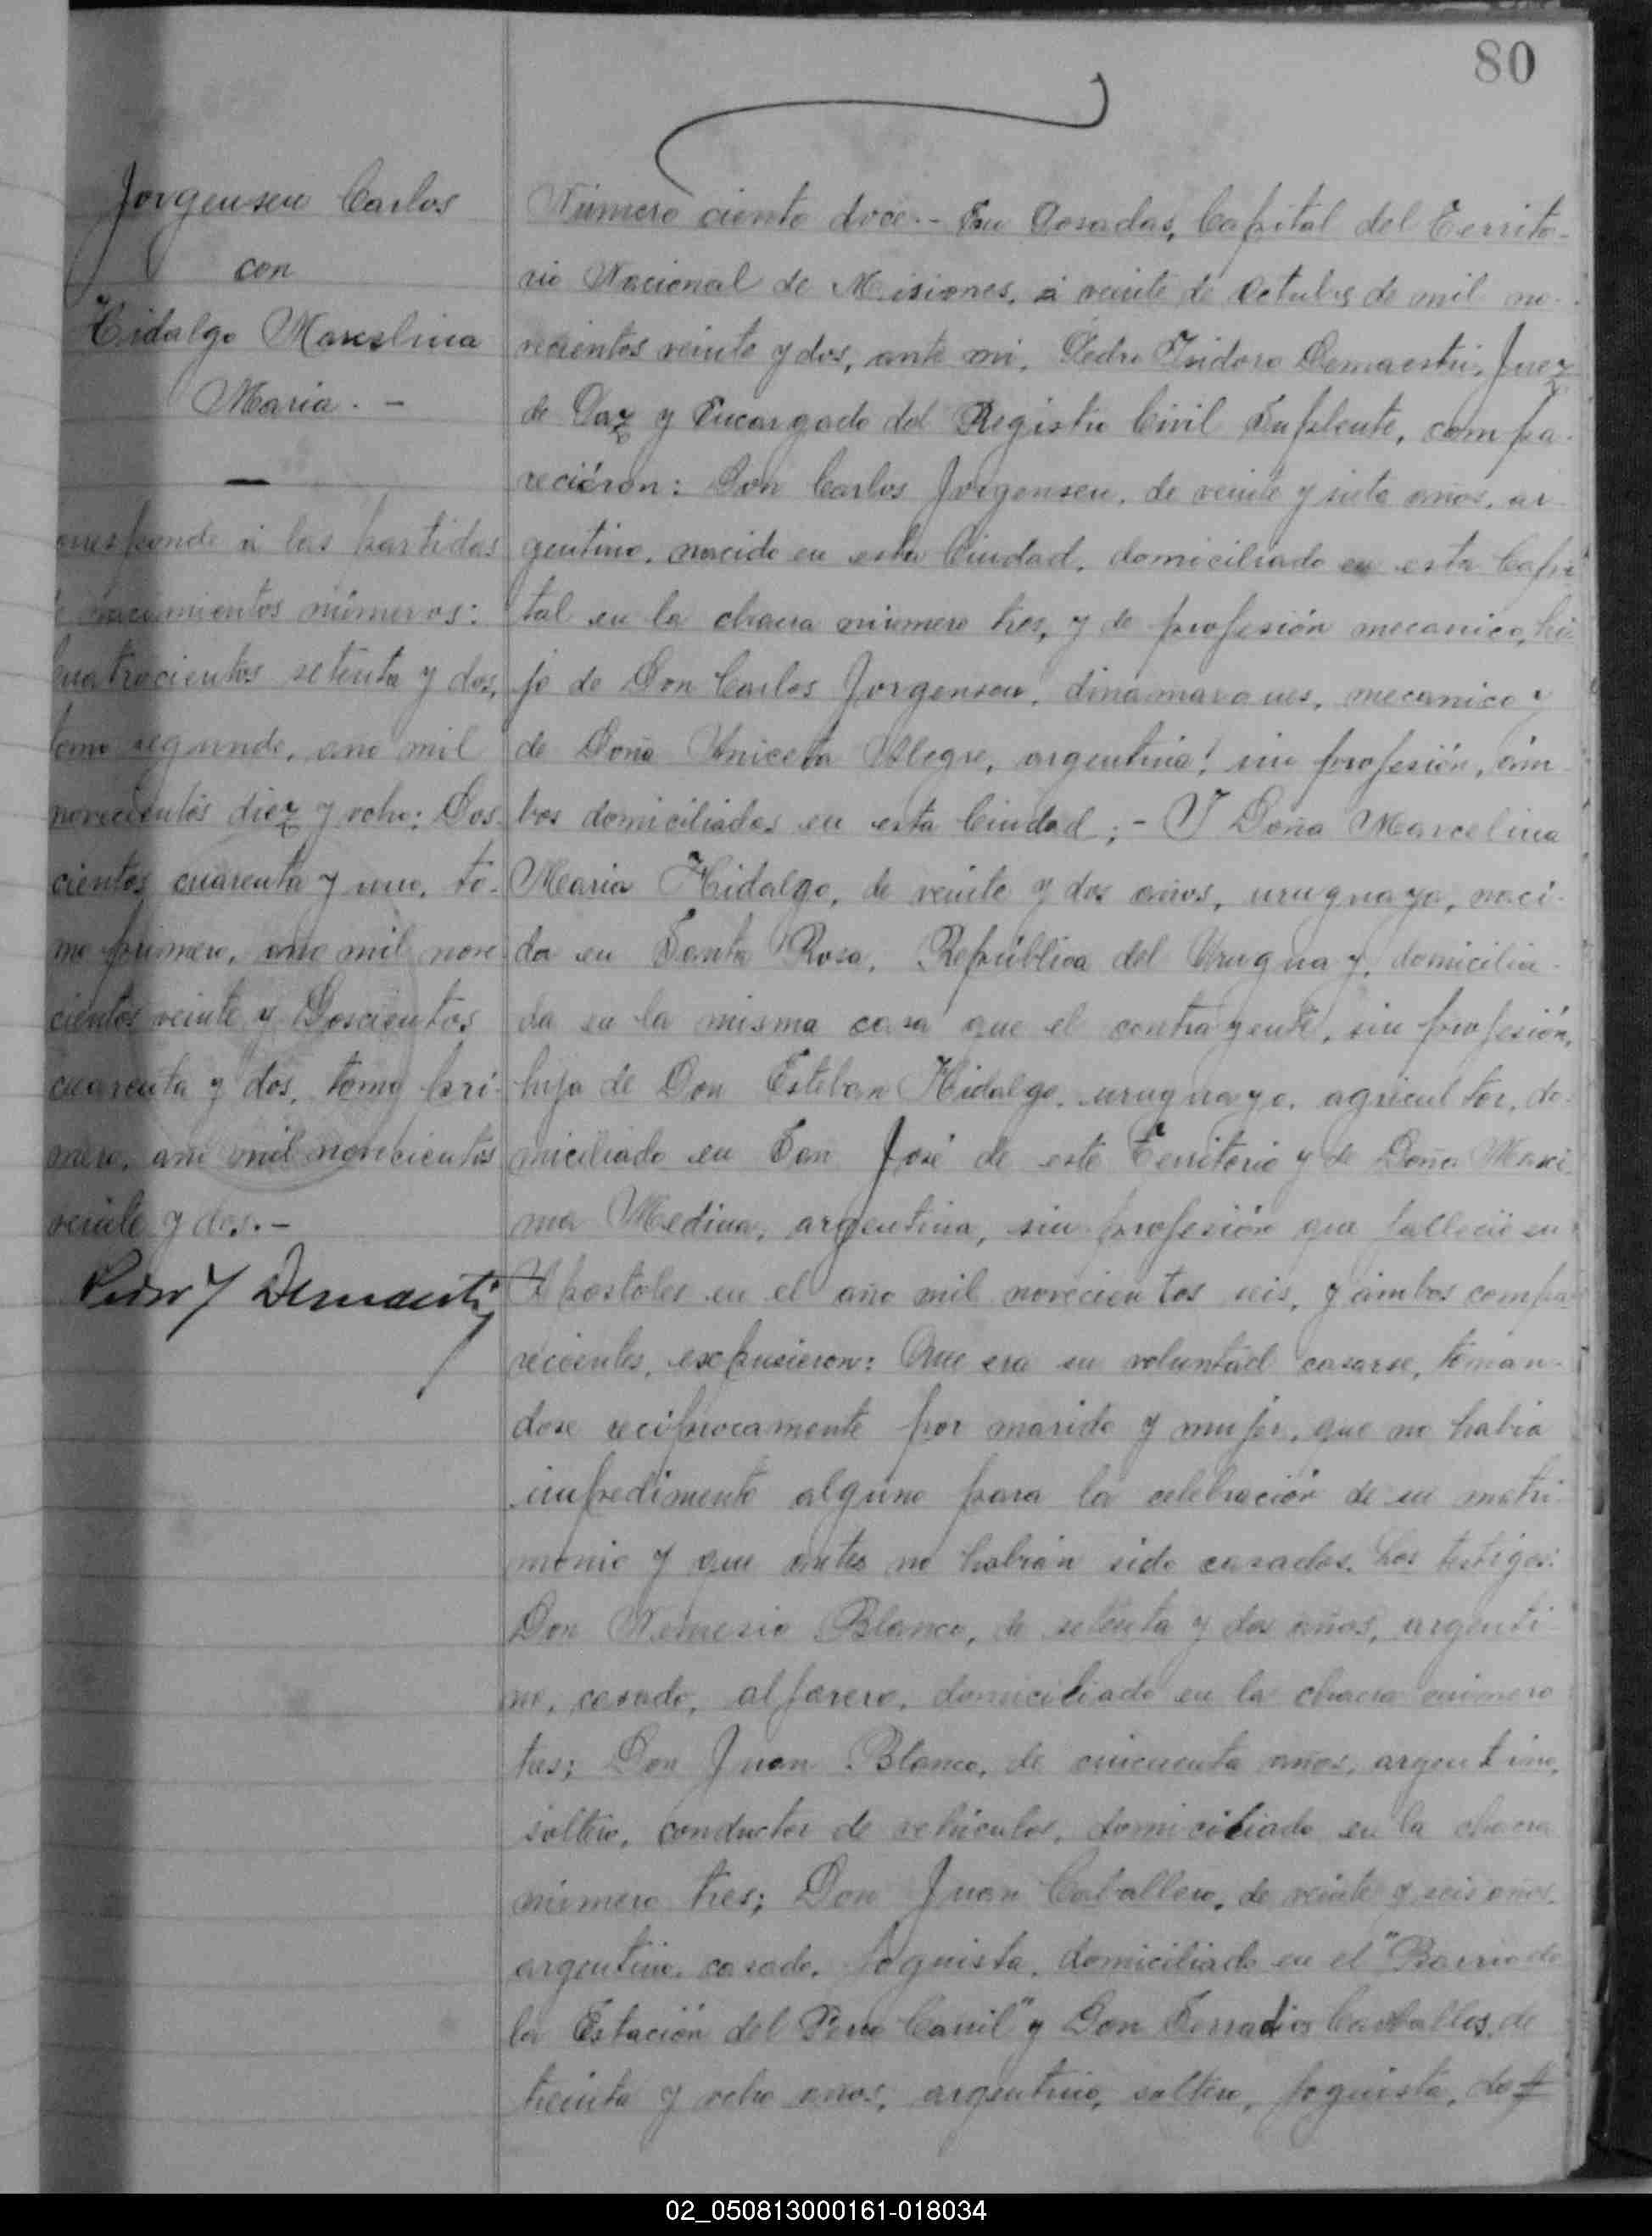 80
Jorgensen Carlos
con
Hidalgo Marcelina
Maria. -
orresponde á las partidas
e nacimientos números:
Cuatrocientos setenta y dos,
tomo segundo, año mil
novecientos diez y ocho; Dos-
cientos cuarenta y uno, to-
mo primero, año mil nove-
cientos veinte y Doscientos
cuarenta y dos, tomo pri-
mero, año mil novecientos
veinte y dos. -
Número ciento doce. - En Posadas, Capital del Territo-
rio Nacional de Misiones, á veinte de Octubre de mil no-
vecientos veinte y dos, ante mi, Pedro Isidoro Demaestri, Juez
de Paz y Encargado del Registro Civil Suplente, compa-
reciéron: Don Carlos Jorgensen, de veinte y siete años, ar-
gentino, nacido en esta Ciudad, domiciliado en esta Capi
tal en la chacra número tres, y de profesión mecanico, hi-
jo de Don Carlos Jorgensen, dinamarques, mecanico y
de Doña Aniceta Alegre, argentina, sin profesión, ám-
bos domiciliados en esta Ciudad; - Y Doña Marcelina
Maria Hidalgo, de veinte y dos años, uruguaya, naci-
da en Santa Rosa, República del Uruguay, domicilia-
da en la misma casa que el contrayente, sin profesión,
hija de Don Esteban Hidalgo, uruguayo, agricultor, do-
miciliado en San José de este Territorio y de Doña Maxi-
ma Medina, argentina, sin profesión que falleció en
Apostoles en el año mil novecientos seis, y ambos compa-
recientes, expusieron: Que era su voluntad casarse, toman-
dose reciprocamente por marido y mujer, que no habia
impedimento alguno para la celebración de su matri-
monio y que antes no habian sido casados. Los testigos:
Don Nemesio Blanco, de setenta y dos años, argenti-
no, casado, alfarero, domiciliado en la chacra número
tres; Don Juan Blanco, de cincuenta años, argentino,
soltero, conductor de vehículos, domiciliado en la chacra
número tres; Don Juan Caballero, de veinte y seis años,
argentino, casado, foguista, domiciliado en el "Barrio de
la Estación del Ferro Carril" y Don
treinta y ocho años, argentino, soltero, foguista, do
Pedro Y Demaestri
02_050813000161-018034